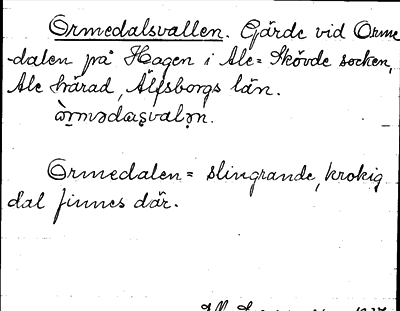 Ormedalsvallen. Gärde vid Orme
-dalen på Hagen i Ale-Skövde socken,
Ale härad, Älfsborgs län.
Ormedalen = slingrande, krokig
dal finnes där.